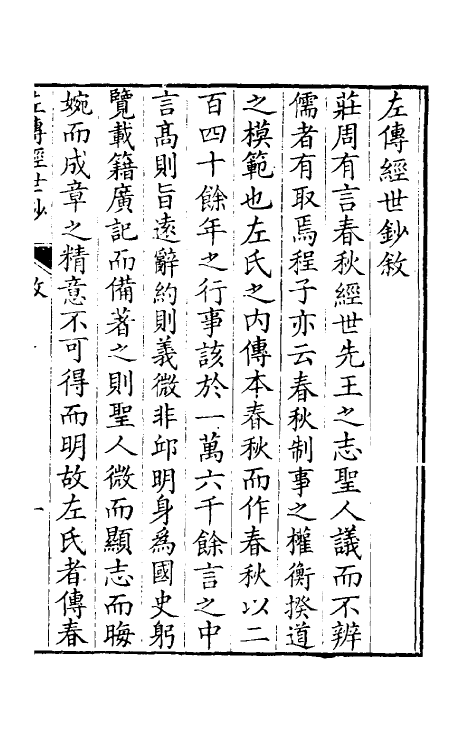 左傳經世鈔敘
莊周有言春秋經世先王之志聖人議而不辨
儒者有取焉程子亦云春秋制事之權衡揆道
之模範也左氏之內傳本春秋而作春秋以二
百四十餘年之行事該於一萬六千餘言之中
言高則旨遠辭約則義微非邱明身為國史躬
覽載籍廣記而備著之則聖人微而顯志而晦
婉而成章之精意不可得而明故左氏者傳春
左傳經世鈔 敘 一